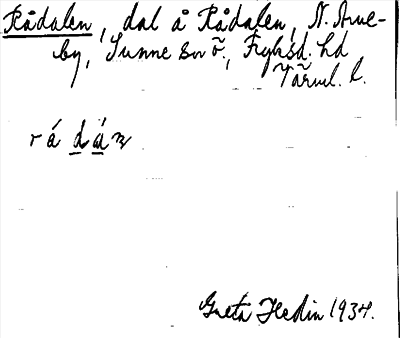 Rådalen, dal å Rådalen, N. Arne-
by, Sunne sn ö., Fryksd. hd
Värml. l.
r á d á n
Greta Hedin 1934.